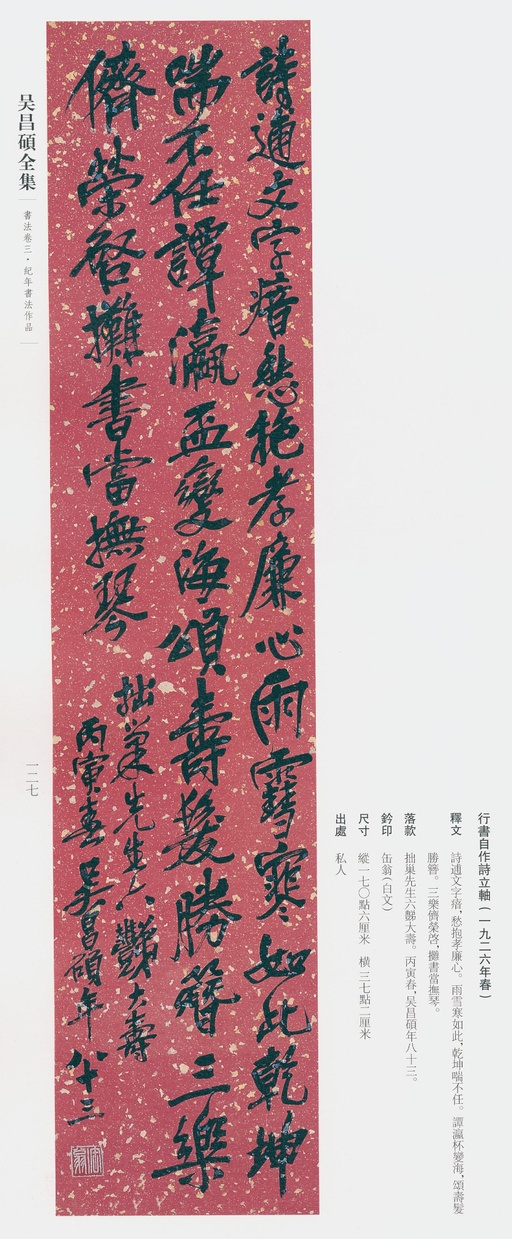 行書自作詩立軸（一九二六年春）
釋文　詩逋文字瘖，愁抱孝廉心。雨雪寒如此，乾坤喘不任。譚瀛杯變海，頌壽髮
勝簪。三樂儕榮啓，攤書當撫琴。
落款　拙巢先生六豑大壽。丙寅春，吴昌碩年八十三。
鈐印　缶翁（白文）
尺寸　縱一七〇點六厘米　橫三七點二厘米
出處　私人
詩逋文字瘖愁抱孝廉心雨雪寒如此乾坤
喘不任譚瀛盃變海頌壽髮勝簪三樂
儕榮啓攤書當撫琴
拙巢先生六豑大壽
丙寅春吴昌碩年八十三
缶翁
吴昌碩全集
書法卷三·紀年書法作品
一二七